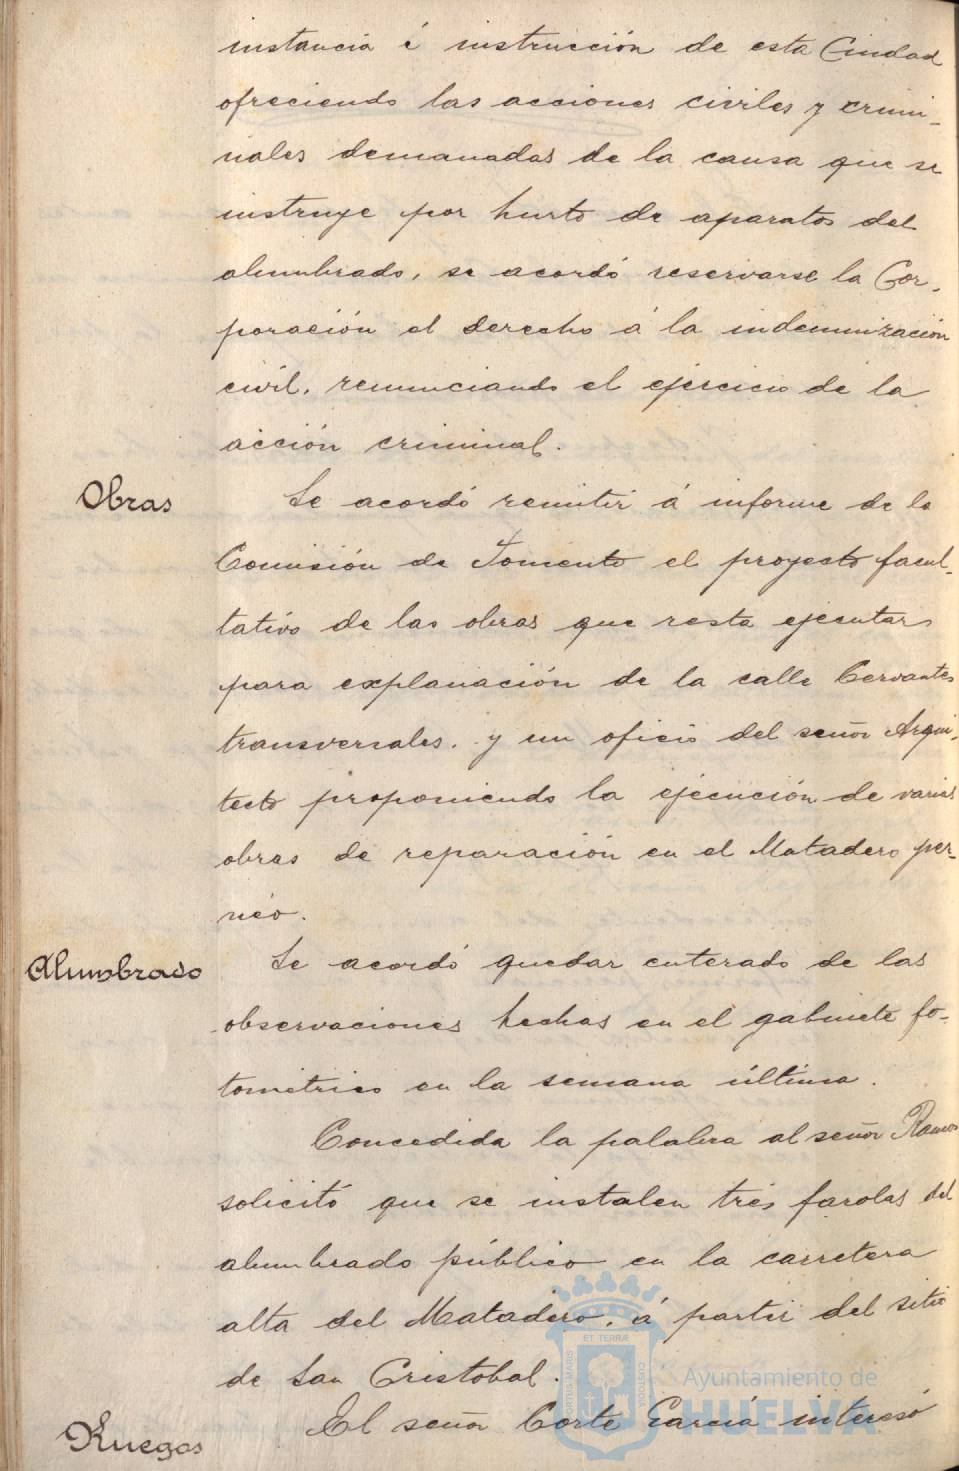 instancia é instrucción de esta Ciudad
ofreciendo las acciones civiles y crimi-
nales demanadas de la causa que se
instruye por hurto de aparatos del
alumbrado, se acordó reservarse la Cor-
poración el derecho á la indemnización
civil, renunciando el ejercicio de la
acción criminal.
Obras
Se acordó remitir á informe de la
Comisión de Fomento el proyecto facul-
tativo de las obras que resta ejecutar
para explanación de la calle Cervantes
transversales, y un oficio del señor Arqui-
tecto proponiendo la ejecución de varias
obras de reparación en el Matadero per-
neo.
Alumbrado
Se acordó quedar enterado de las
observaciones hechas en el gabinete fo-
tométrico en la semana última.
Concedida la palabra al señor Ramos
solicitó que se instalen tres farolas del
alumbrado público en la carretera
alta del Matadero, á partir del sitio
de San Cristobal.
Ruegos
El señor Corte García interesó
PORTUS MARIS ET TERRÆ CUSTODIA
Ayuntamiento de
HUELVA